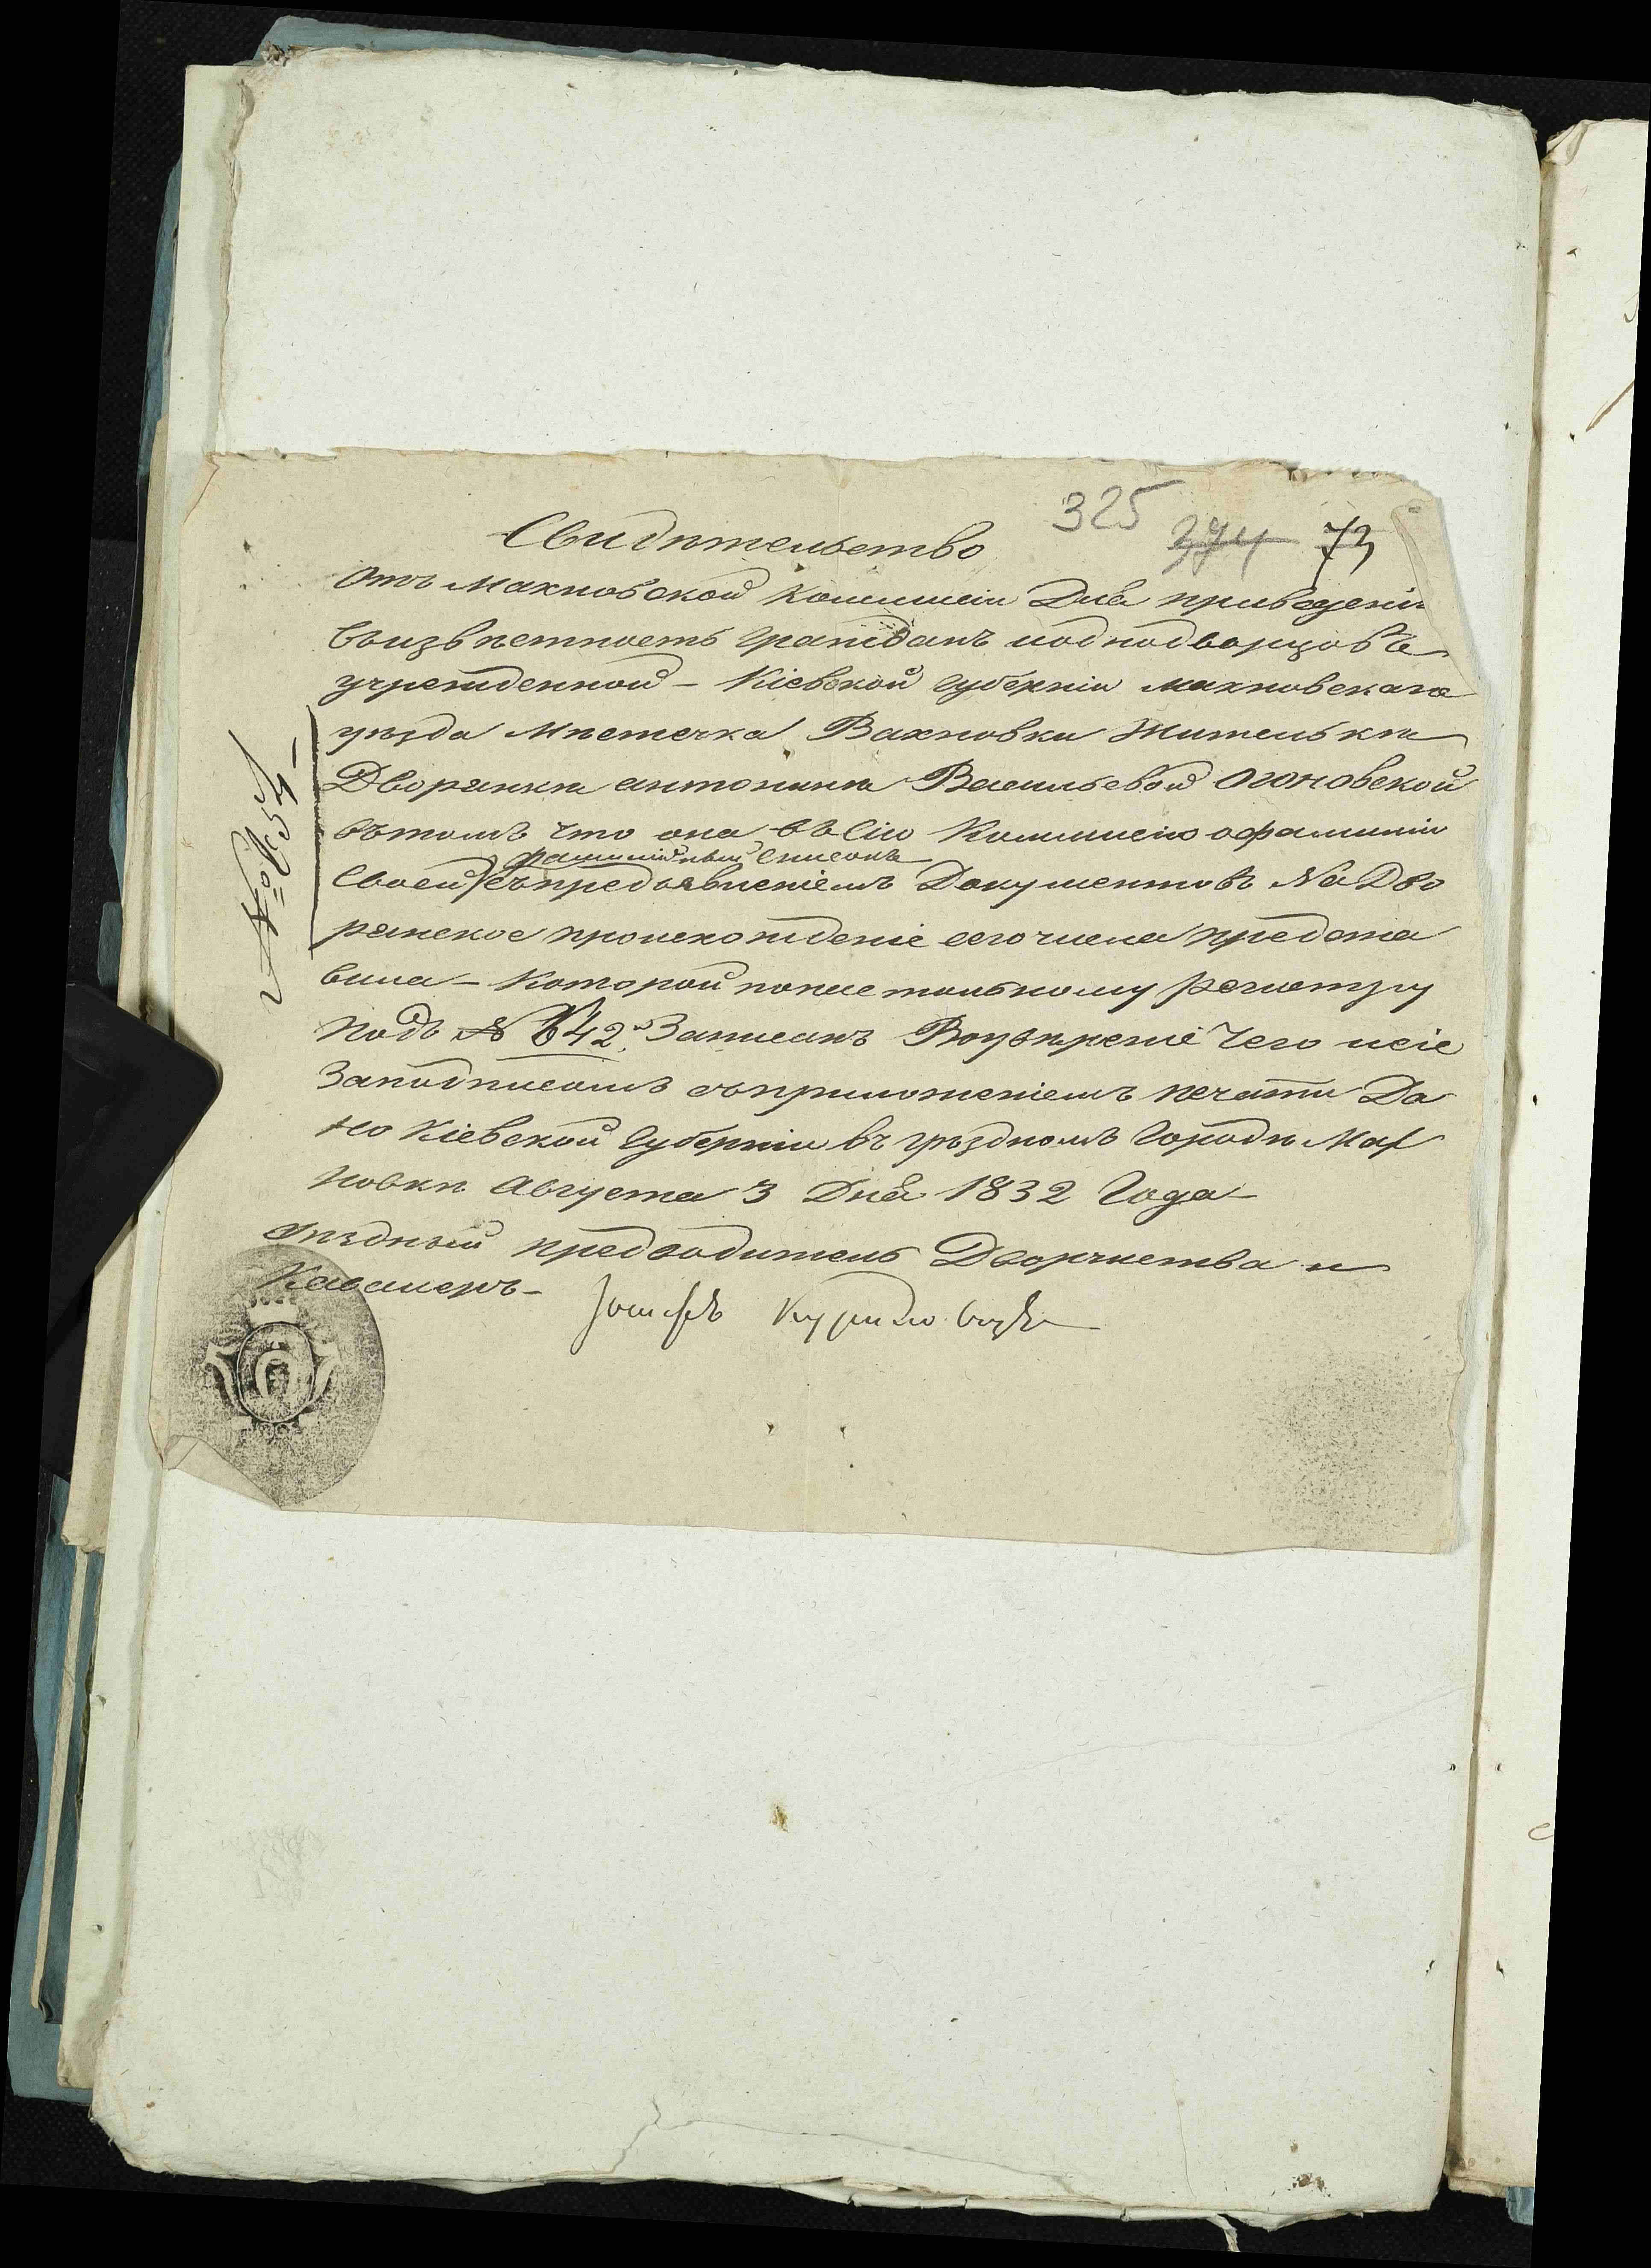 325 374 73
Свидѣтельство
Отъ Махновской Коммисіи Для приведенія
въизвѣстность гражданъ иоднодворцовъ
учрежденной – Кіевской Губерніи махновскаго
уѣзда Мѣстечка Вахновки Жительки
Дворянки антонины Васильевой Огоновской
вътомъ что она въ Сію Коммисію офамиліи
фамилійный Списокъ
Своей съпредъявленіемъ Документовъ На Дво
рянское происхожденіе сегочисла предста
вила – Которой понастольному Регистру
Подъ № 642м Записанъ Воувѣреніе Чего исіе
Заподписомъ съприложеніемъ печати Да
но Кіевской Губерніи въ уѣздномъ Городѣ Мах
новкѣ Августа 3 Дня 1832 Года –
Уѣздный предводитель Дворянства и
Кавалеръ –
№ 54 –